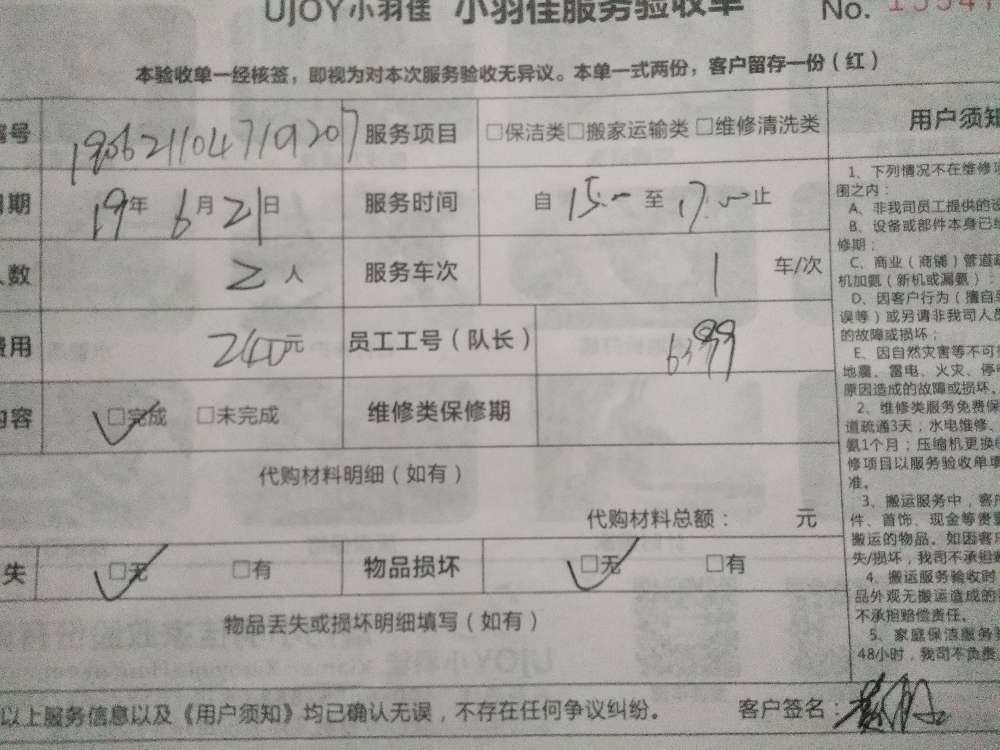 UJOY小羽佳 小羽佳服务验收单 No.
本验收单一经核签，即视为对本次服务验收无异议。本单一式两份，客户留存一份（红）
号 190621104719207 服务项目 □保洁类□搬家运输类 □维修清洗类
期 19年 6月21日 服务时间 自 15:00 至 17:00 止
人数 2 人 服务车次 1 车/次
费用 240元 员工工号（队长）
内容 ☑完成 □未完成 维修类保修期
代购材料明细（如有）
代购材料总额： 元
失 ☑无 □有 物品损坏 ☑无 □有
物品丢失或损坏明细填写（如有）
以上服务信息以及《用户须知》均已确认无误，不存在任何争议纠纷。 客户签名：
用户须知
1、下列情况不在维修
围之内：
A、非我司员工提供的
B、设备或部件本身已
修期；
C、商业（商铺）管道
机加氨（新机或漏氨）：
D、因客户行为（擅自
误等）或另请非我司人员
的故障或损坏；
E、因自然灾害等不可
地震、雷电、火灾、停
原因造成的故障或损坏。
2、维修类服务免费保
道疏通3天；水电维修、
氨1个月；压缩机更换
修项目以服务验收单
准。
3、搬运服务中，客
件、首饰、现金等贵
搬运的物品。如因客
失/损坏，我司不承担
4、搬运服务验收时
品外观无搬运造成的
不承担赔偿责任。
5、家庭保洁服务
48小时，我司不负责